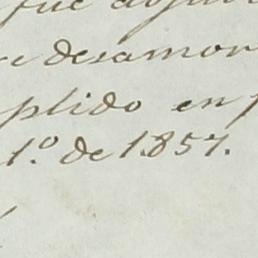 fue
desamor
plido en
1.º de 1.857.